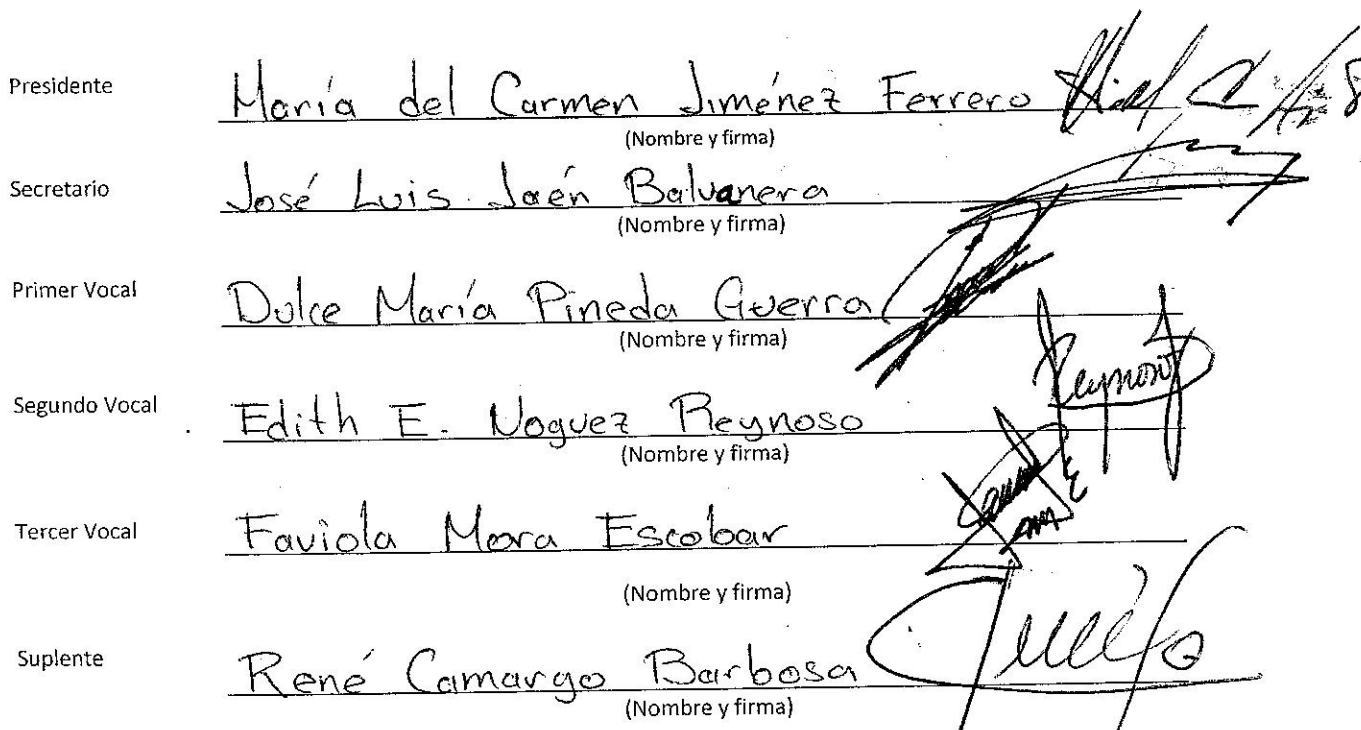 Presidente María del Carmen Jiménez Ferrero
(Nombre y firma)
Secretario José Luis Jaén Balvanera
(Nombre y firma)
Primer Vocal Dulce María Pineda Guerra
(Nombre y firma)
Segundo Vocal Edith E. Noguez Reynoso Reynoso
(Nombre y firma)
Tercer Vocal Faviola Mora Escobar
(Nombre y firma)
Suplente René Camargo Barbosa
(Nombre y firma)